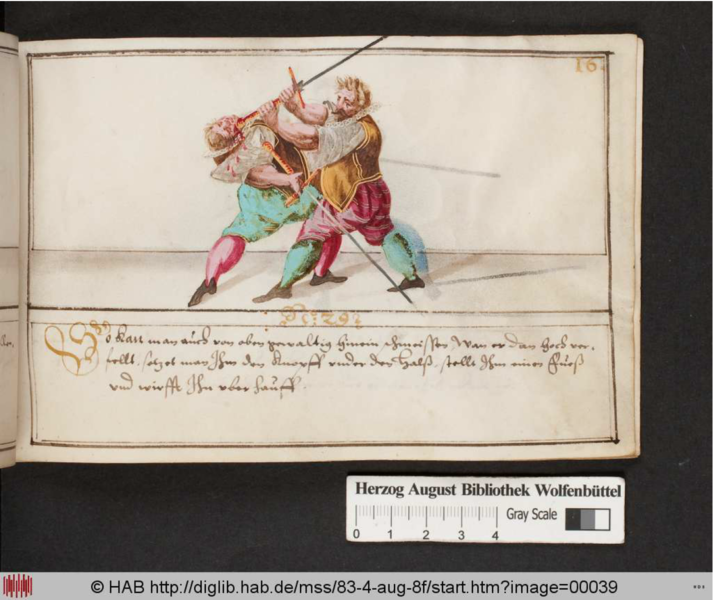 16
No: 29
So kan man auch von oben gewaltig hinein schmeissen Wan er dan hoch ver=
sellt, setzet man Ihm den knopff under den Halß, stellt Ihm einen Fueß
und wirfft Ihn uber hauff.
Herzog August Bibliothek Wolfenbüttel
Gray Scale
0 1 2 3 4
© HAB http://diglib.hab.de/mss/83-4-aug-8f/start.htm?image=00039